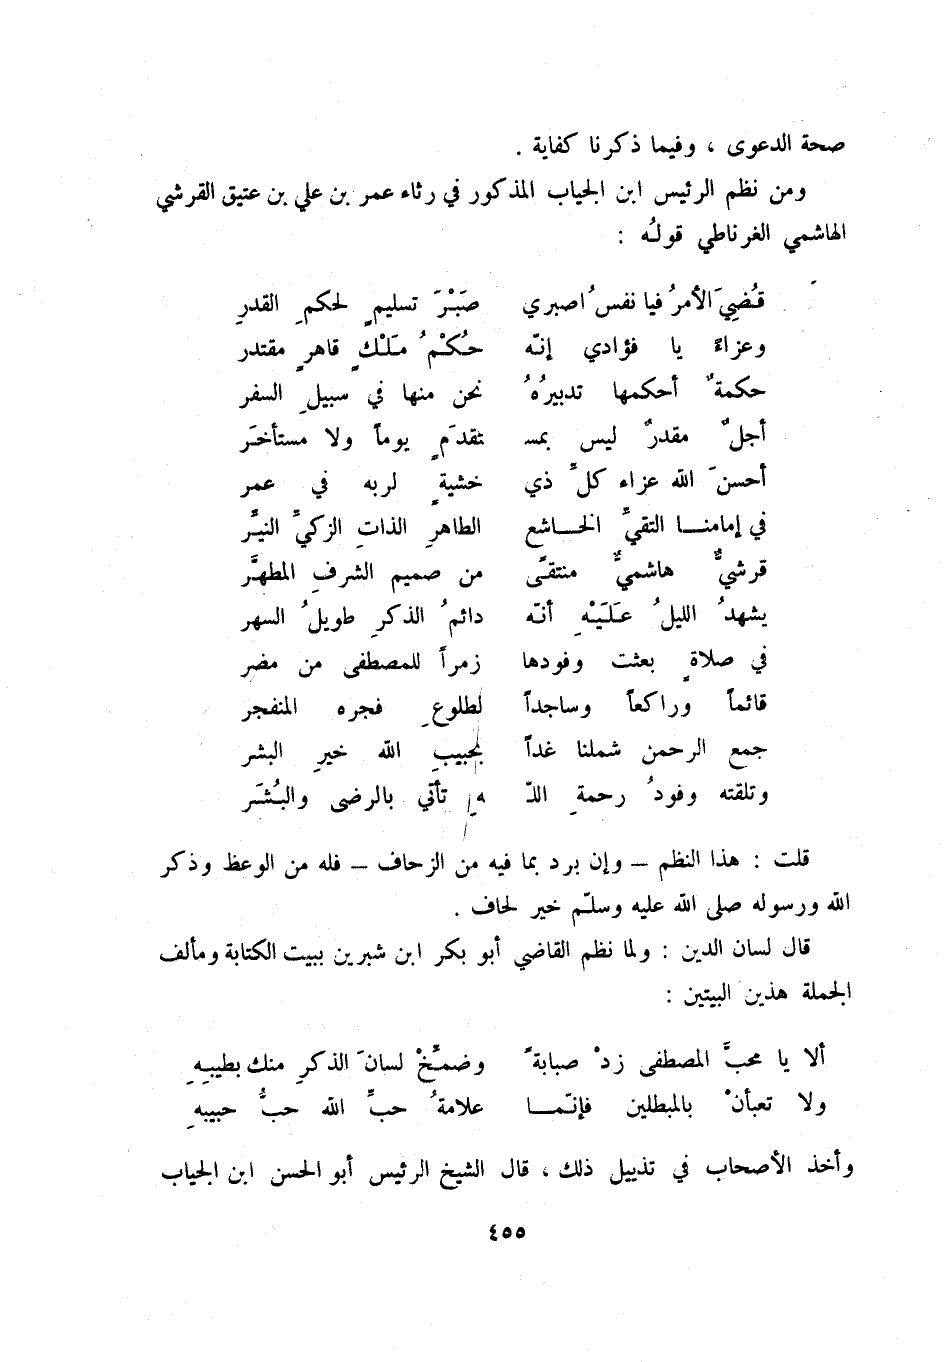 صحة الدعوى ، وفيما ذكرنا كفاية .
ومن نظم الرئيس ابن الجياب المذكور في رثاء عمر بن علي بن عتيق القرشي
الهاشمي الغرناطي قولُه :
قُضِيَ الأمرُ فيا نفسُ اصبري صَبْرَ تسليمٍ لحكمِ القدرِ
وعزاءً يا فؤادي إنّه حُكْمُ مَلْكٍ قاهرٍ مقتدر
حكمةٌ أحكمها تدبيرُهُ نحن منها في سبيلِ السفر
أجلٌ مقدرٌ ليس بمسـ تقدَمٍ يوماً ولا مستأخَر
أحسنَ الله عزاء كلِّ ذي خشيةٍ لربه في عمر
في إمامنـا التقيِّ الخـاشع الطاهرِ الذاتِ الزكيِّ النيِّر
قرشيٌّ هاشميٌّ منتقىً من صميم الشرفِ المطهَّر
يشهدُ الليلُ عَلَيْهِ أنّه دائمُ الذكرِ طويلُ السهر
في صلاةٍ بعثت وفودها زمراً للمصطفى من مضر
قائماً وراكعاً وساجداً لطلوعِ فجره المنفجر
جمع الرحمن شملنا غداً بحبيبِ الله خيرِ البشر
وتلقته وفودُ رحمةِ اللـّ ـهِ تأتي بالرضى والبُشَر
قلت : هذا النظم – وإن برد بما فيه من الزحاف – فله من الوعظ وذكر
الله ورسوله صلى الله عليه وسلّم خير لحاف .
قال لسان الدين : ولما نظم القاضي أبو بكر ابن شبرين ببيت الكتابة ومألف
الجملة هذين البيتين :
ألا يا محبَّ المصطفى زدْ صبابةً وضمِّخْ لسانَ الذكرِ منك بطيبِهِ
ولا تعبأنْ بالمبطلين فإنّمـا علامةُ حبِّ الله حبُّ حبيبهِ
وأخذ الأصحاب في تذييل ذلك ، قال الشيخ الرئيس أبو الحسن ابن الجياب
٤٥٥